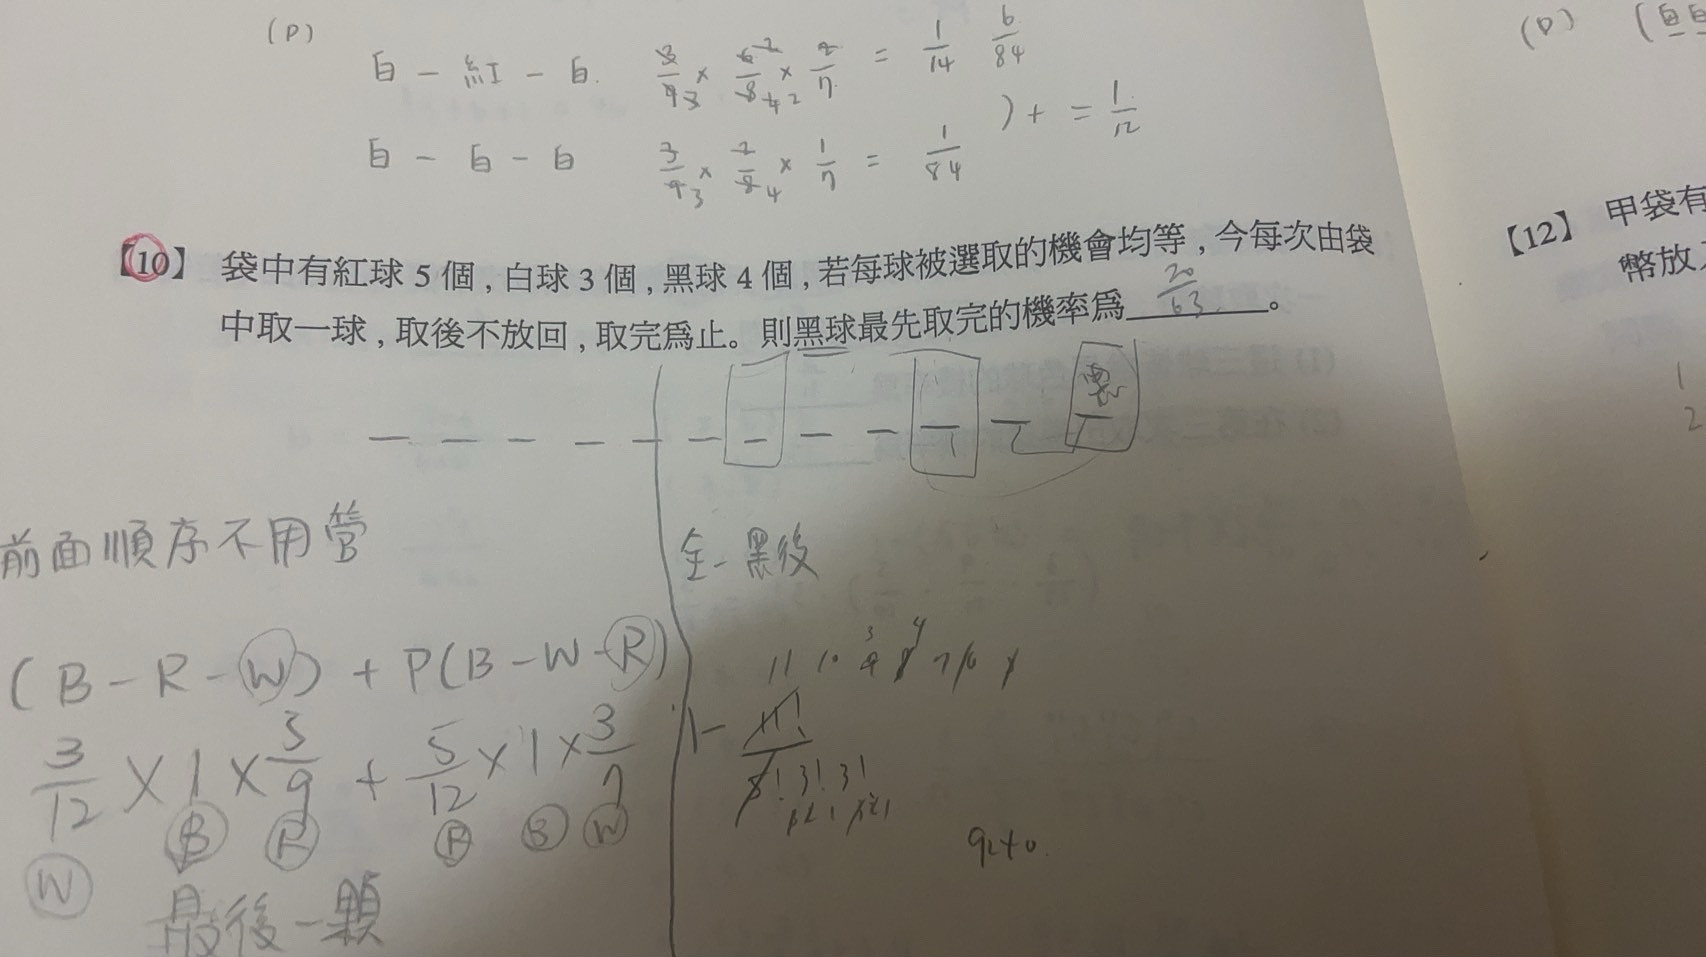 (D)
白 - 紅 - 白 3/9 3 × 6/8 2/4 × 2/7 2 = 1/14 6/84
) + = 1/12
白 - 白 - 白 3/9 3 × 2/8 4 × 1/7 = 1/84
【10】 袋中有紅球 5 個，白球 3 個，黑球 4 個，若每球被選取的機會均等，今每次由袋
中取一球，取後不放回，取完為止。則黑球最先取完的機率為 20/63 。
黑
前面順序不用管
(B - R - W) + P(B - W - R)
3/12 × 1 × 5/9 + 5/12 × 1 × 3/7
W B R R B W
最後一顆
全 - 黑後
11 10 9 3 8 4 7 6 5
1 - 11!/5! 3! 3!
9240
(D) (白白
【12】 甲袋有
幣放入
1
2